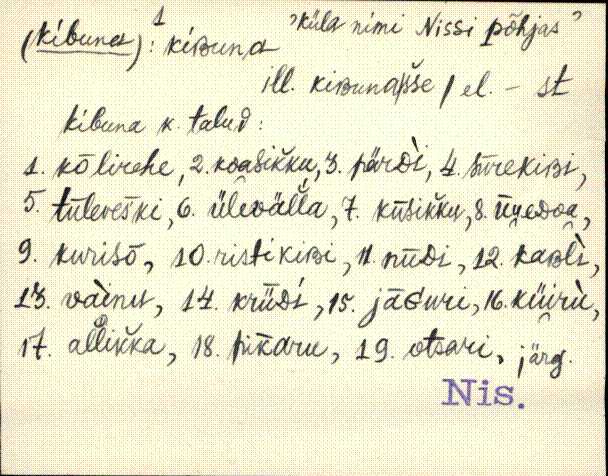 (kibuna): ¹ kiʙuna 'küla nimi Nissi põhjas'
ill. kiʙunaǀšše / el. – st
kibuna k. talud:
1. kōlirehe, 2. koasikku, 3. pärdì, 4. sūrekiʙi,
5. tūleveski, 6. ülevälĺa, 7. kūsikku, 8. ūɢeᴅoa,
9. kurisō, 10. ristikiʙi, 11. nīdi, 12. kaʙlì,
13. vàinu, 14. krǖdi, 15. jāɢuri, 16. küirù,
17. allikka, 18. pikaru, 19. otsari, järg.
Nis.